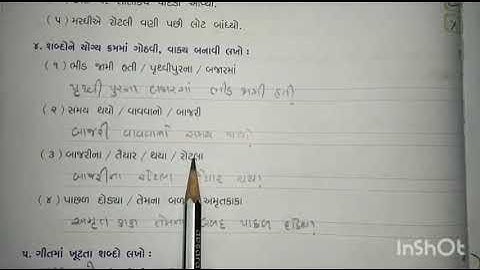 (૫) મરઘીએ રોટલી વણી પછી લોટ બાંધ્યો.
૪. શબ્દોને યોગ્ય ક્રમમાં ગોઠવી, વાક્ય બનાવી લખો :
(૧) ભીડ જામી હતી / પૃથ્વીપુરના / બજારમાં
પૃથ્વી પુરના બજારમાં ભીડ જામી હતી.
(૨) સમય થયો / વાવવાનો / બાજરી
બાજરી વાવવાનો સમય થયો.
(૩) બાજરીના / તૈયાર / થયા / રોટલા
બાજરીના રોટલા થયા.
(૪) પાછળ દોડ્યા / તેમના અમૃતકાકા
અમૃત કાકા તેમના બળદ પાછળ
૫. ગીતમાં ખૂટતા શબ્દો લખો :
InShOt